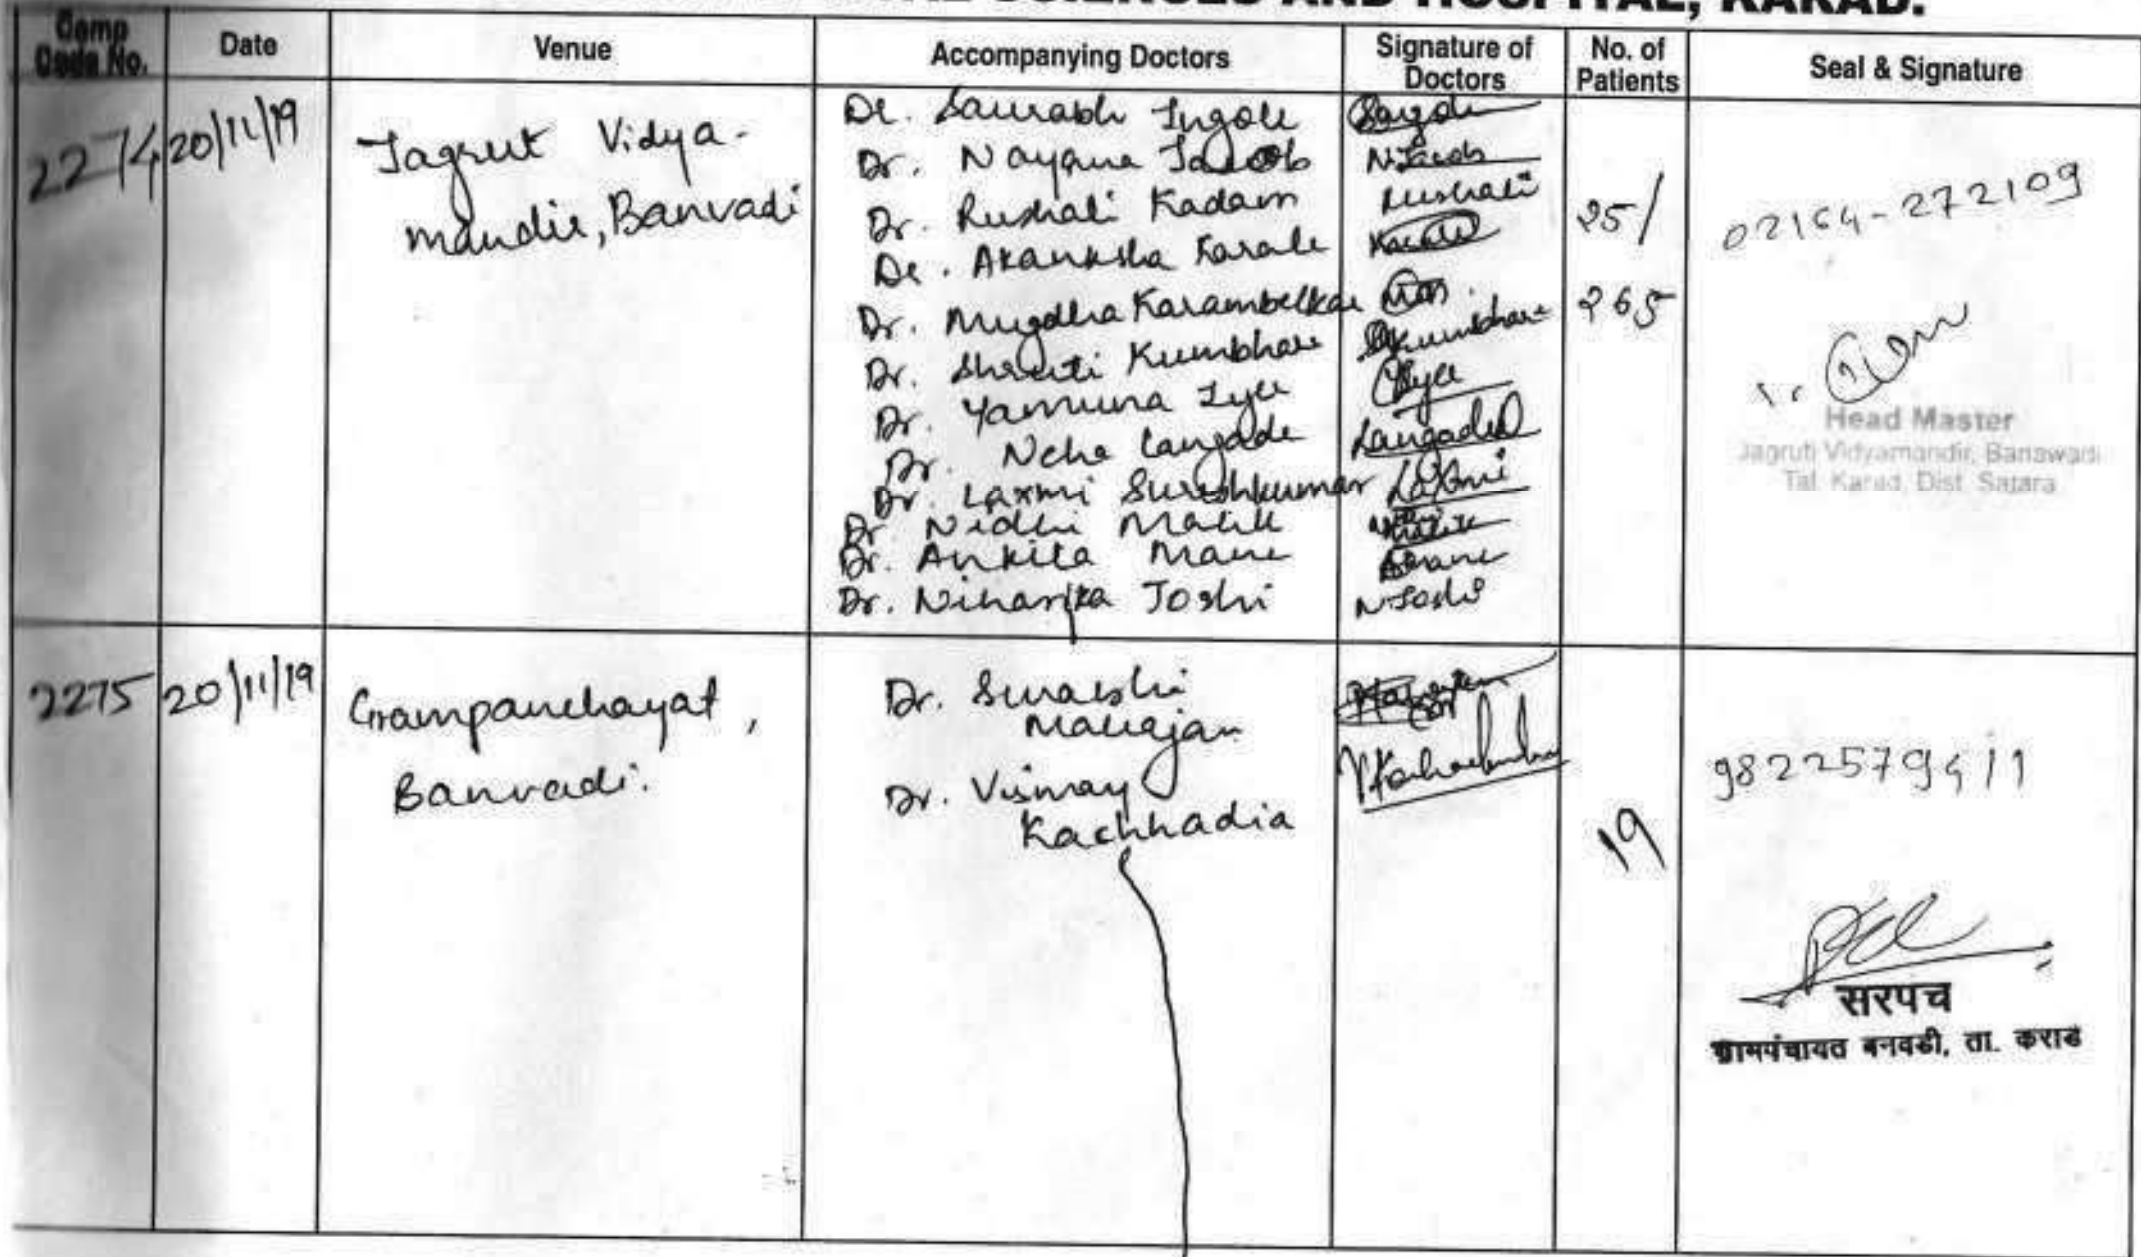 SCIENCES AND HOSPITAL, KARAD.
Camp Code No. Date Venue Accompanying Doctors Signature of Doctors No. of Patients Seal & Signature
2274 20/11/19 Jagrut Vidya-
mandir, Banvadi
Dr. Saurabh Ingole
Dr. Nayana Jacob N.Jacob
Dr. Rushali Kadam Rushali
Dr. Akanksha Karale Karale
Dr. Mugdha Karambelkar
Dr. Shruti Kumbhare Skumbhare
Dr. Yamuna Iyer Iyer
Dr. Neha Langade Langade
Dr. Laxmi Sureshkumar Laxmi
Dr. Nidhi Malik
Dr. Ankita Mane AMane
Dr. Niharika Joshi N Joshi
25/
265
02164-272109
Head Master
Jagruti Vidyamandir, Banawadi
Tal. Karad, Dist. Satara
2275 20/11/19 Grampanchayat,
Banvadi.
Dr.
Mahajan
Dr. Vismay
Kachhadia
19
9822579411
सरपंच
ग्रामपंचायत बनवडी, ता. कराड